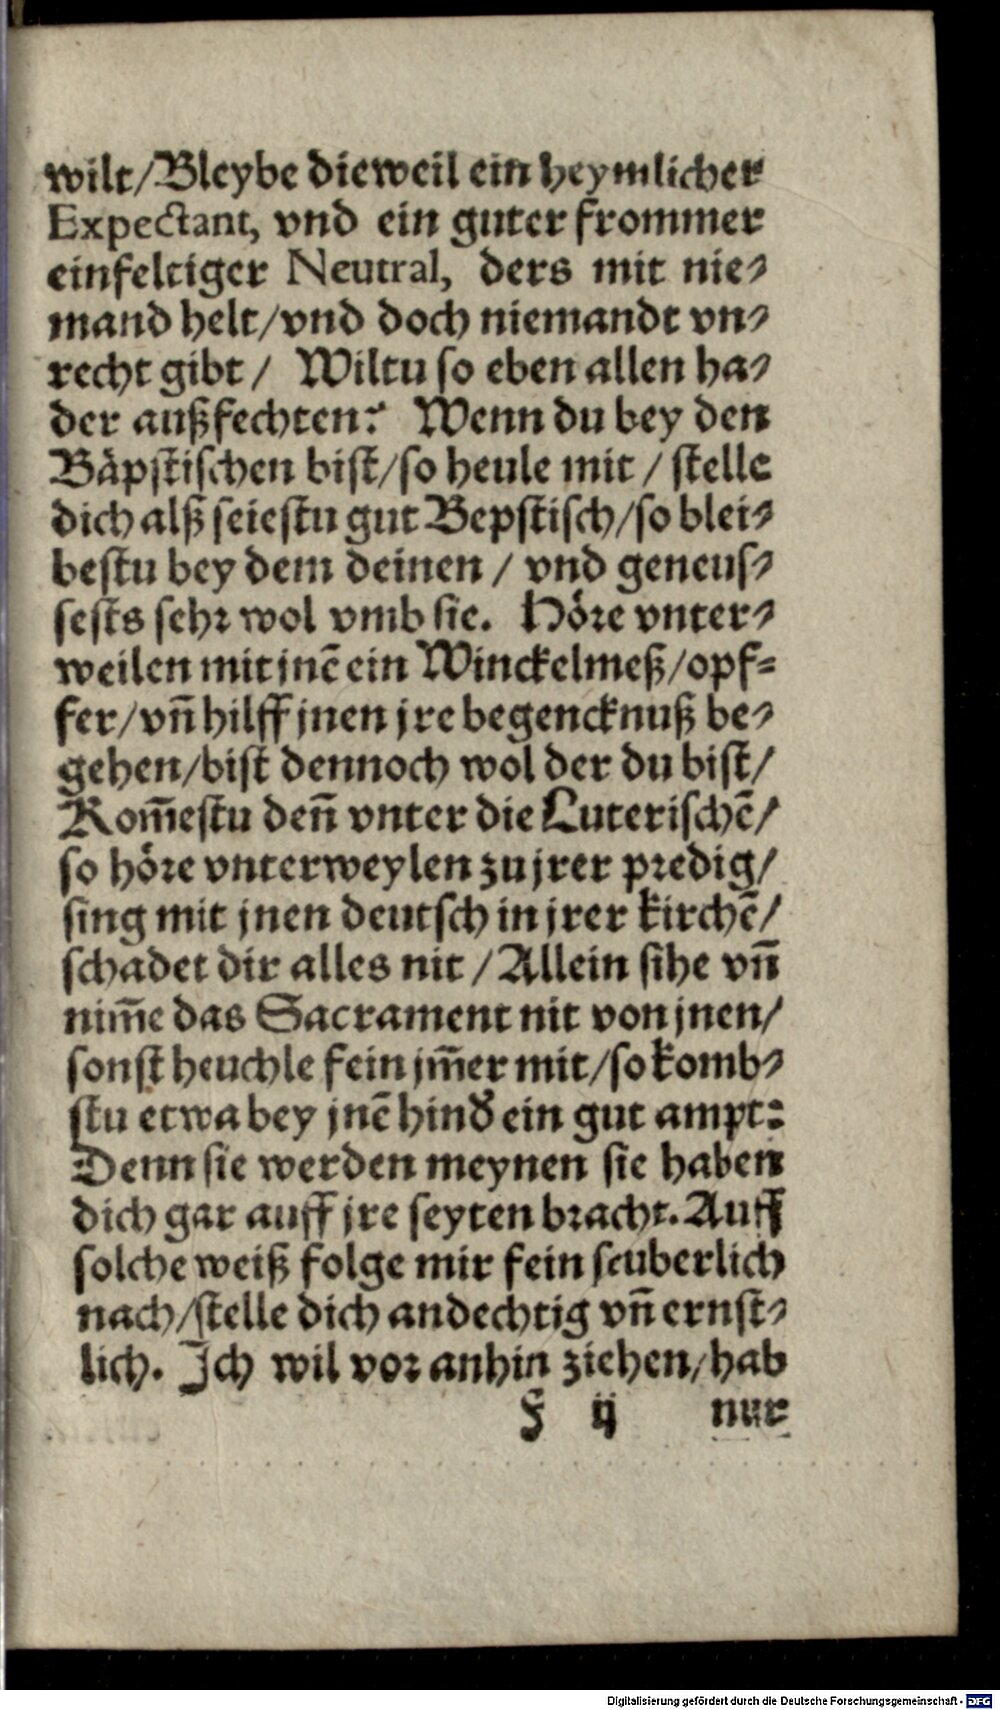 wilt/Bleybe dieweil ein heymlicher
Expectant, vnd ein guter frommer
einfeltiger Neutral, ders mit nie⸗
mand helt/vnd doch niemandt vn⸗
recht gibt/ Wiltu so eben allen ha⸗
der außfechten? Wenn du bey den
Bäpstischen bist/so heule mit/ stelle
dich alß seiestu gut Bepstisch/so blei⸗
bestu bey dem deinen/ vnd geneus⸗
sests sehr wol vmb sie. Höre vnter⸗
weilen mit jnē ein Winckelmeß/opf⸗
fer/vñ hilff jnen jre begencknuß be⸗
gehen/bist dennoch wol der du bist/
Kom̄estu den̄ vnter die Luterischē/
so höre vnterweylen zu jrer predig/
sing mit jnen deutsch in jrer kirchē/
schadet dir alles nit/Allein sihe vñ
nim̄e das Sacrament nit von jnen/
sonst heuchle fein jm̄er mit/so komb⸗
stu etwa bey jnē hind̕ ein gut ampt:
Denn sie werden meynen sie haben
dich gar auff jre seyten bracht. Auff
solche weiß folge mir fein seuberlich
nach/stelle dich andechtig vñ ernst⸗
lich. Ich wil vor anhin ziehen/hab
F ij nur
Digitalisierung gefördert durch die Deutsche Forschungsgemeinschaft - DFG